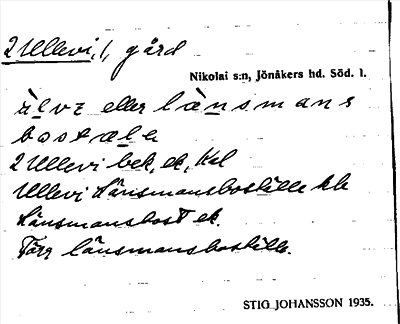 2 Ullevi, 1, gård
Nikolai s:n, Jönåkers hd. Söd. l.
eller länsmans
bostäle
2 Ullevi bek, ek, Kal
Ullevi Länsmansboställe kb
Länsmansbost ek.
Förr länsmansboställe.
STIG JOHANSSON 1935.